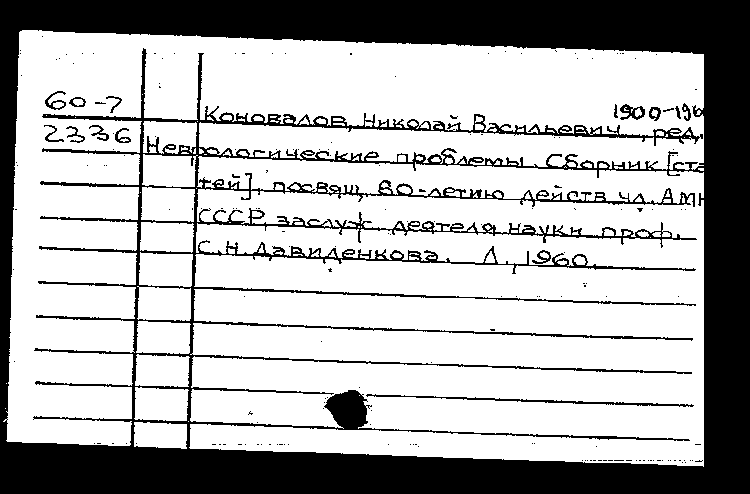 1900-196
60-7 Коновалов, Николай Васильевич, ред.
2336 Неврологические проблемы. Сборник [ста
тей], посвящ. 80-летию действ. чл. АМН
СССР, заслуж. деятеля науки проф.
С.Н. Давиденкова. Л., 1960.